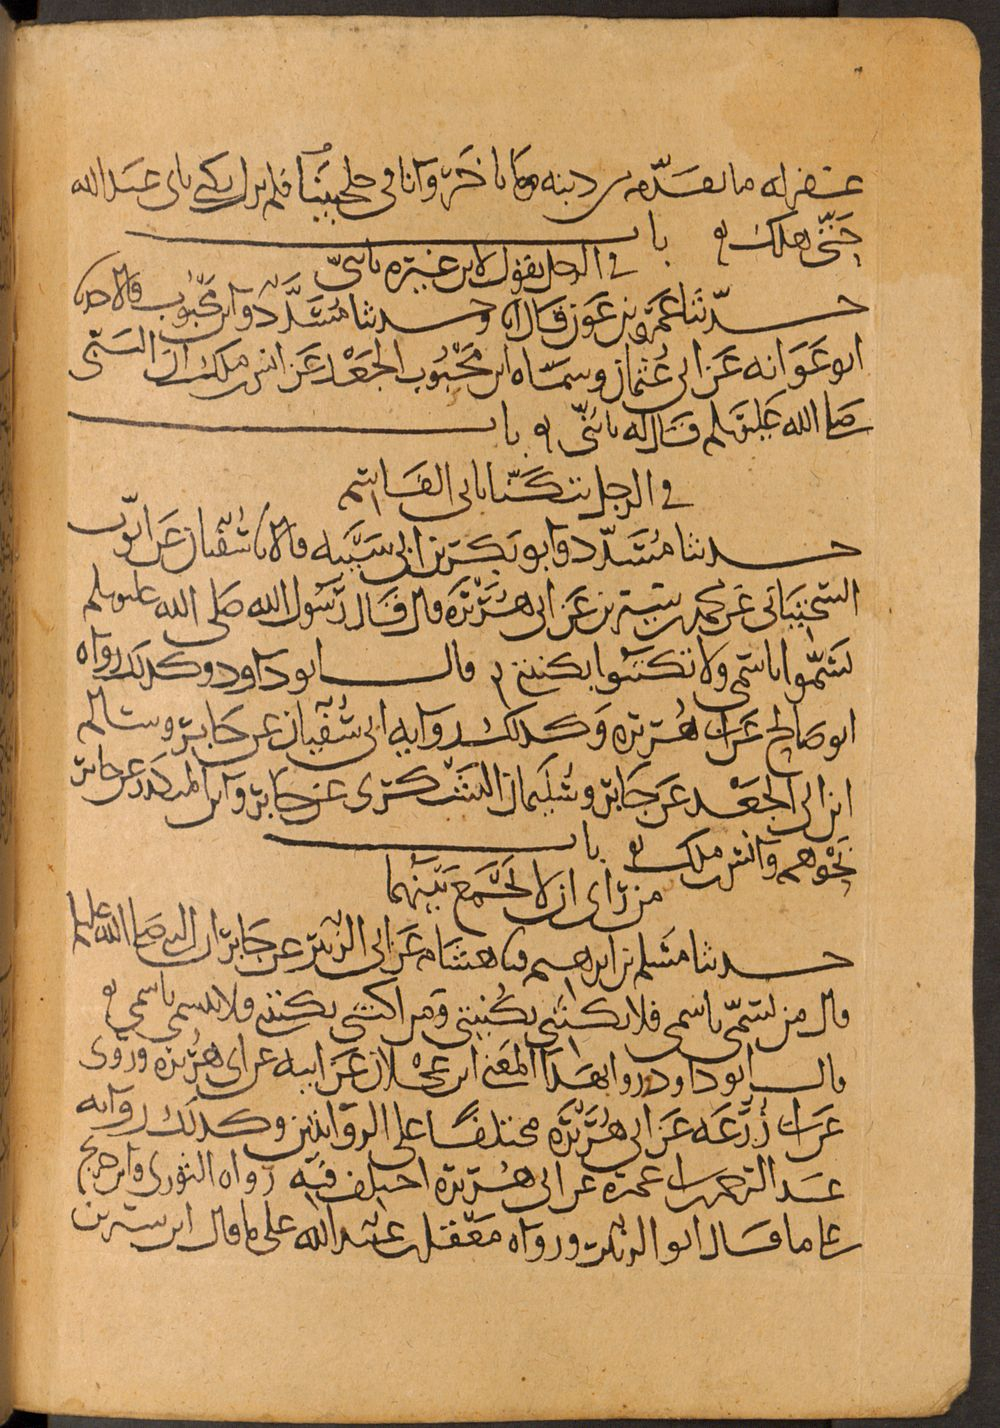 غفر له ما تقدم من ذنبه وما تاخر وانا في جلجتنا فلم يزل يكنى بابي عبد الله
حتى هلك باب
في الرجل يقول لابن غيره يا بني
حدثنا عمرو بن عون قال انا وحدثنا مسدد وابن محبوب قالا حدثنا
ابو عوانه عن ابي عثمان وسماه ابن محبوب الجعد عن انس بن ملك ان النبي
صلى الله عليه وسلم قال له يا بني باب
في الرجل يتكنا بابي القاسم
حدثنا مسدد وابو بكر بن ابي شيبه قالا نا سفيان عن ايوب
السختياني عن محمد بن سيرين عن ابي هريره قال قال رسول الله صلى الله عليه وسلم
تسموا باسمي ولا تكتنوا بكنيتي قال ابو داود وكذلك رواه
ابو صالح عن ابي هريره وكذلك روايه ابي سفيان عن جابر وسالم
ابن ابي الجعد عن جابر وسليمان اليشكري عن جابر وابن المنكدر عن جابر
نحوهم وانس بن ملك باب
من راى ان لا يجمع بينهما
حدثنا مسلم بن ابرهيم نا هشام عن ابي الزبير عن جابر ان النبي صلى الله عليه وسلم
قال من تسمى باسمي فلا يكتني بكنيتي ومن اكتنى بكنيتي فلا يتسمى باسمي
قال ابو داود روى بهذا المعنى ابن عجلان عن ابيه عن ابي هريره وروى
عن ابي زرعه عن ابي هريره مختلفا على الروايتين وكذلك روايه
عبد الرحمن بن ابي عمرة عن ابي هريرة اختلف فيه رواه الثوري وابن جريج
على ما قال ابو الزبير ورواه معقل بن عبيد الله على ما قال ابن سيرين